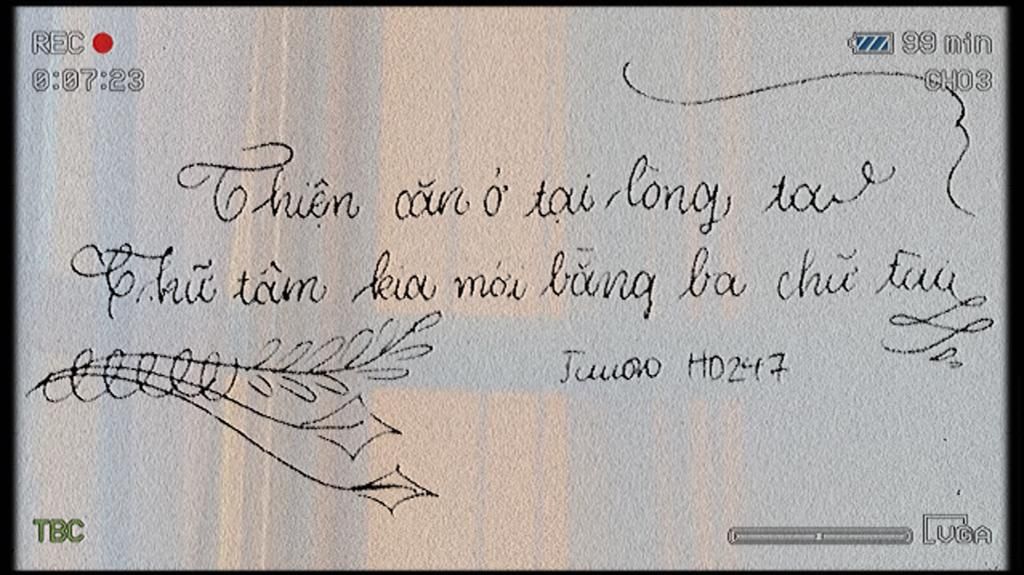 REC
99 min
0:07:23
CH03
Thiện căn ở tại lòng ta
Chữ tâm kia mới bằng ba chữ tài
HD247
TBC
VGA